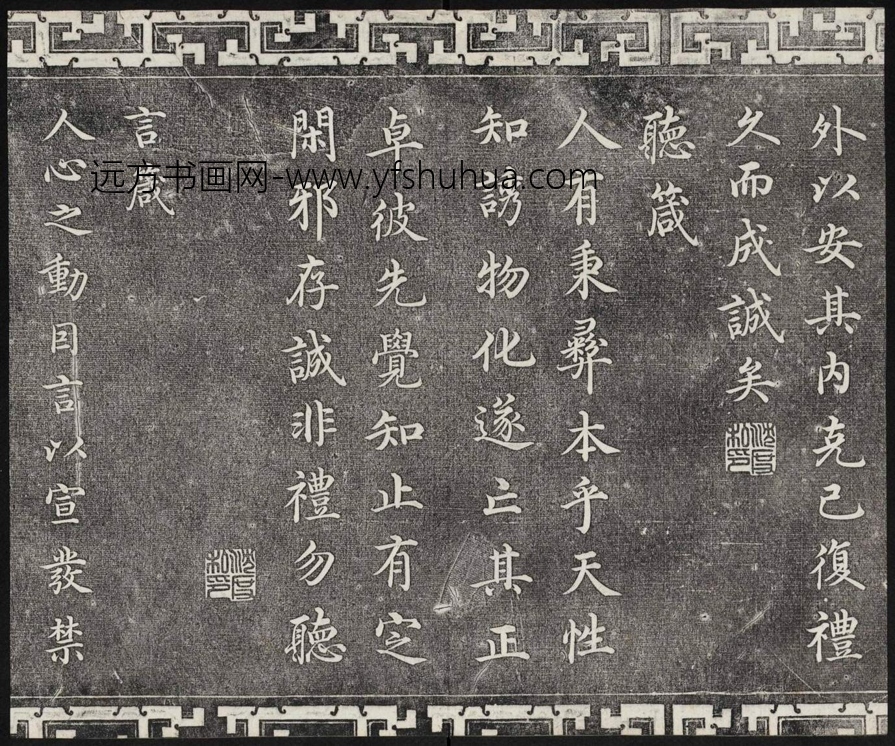 外以安其内克己復禮
久而成誠矣
聽箴
人有秉彝本乎天性
知誘物化遂亡其正
卓彼先覺知止有定
閑邪存誠非禮勿聽
言箴
人心之動因言以宣發禁
远方书画网-www.yfshuhua.com